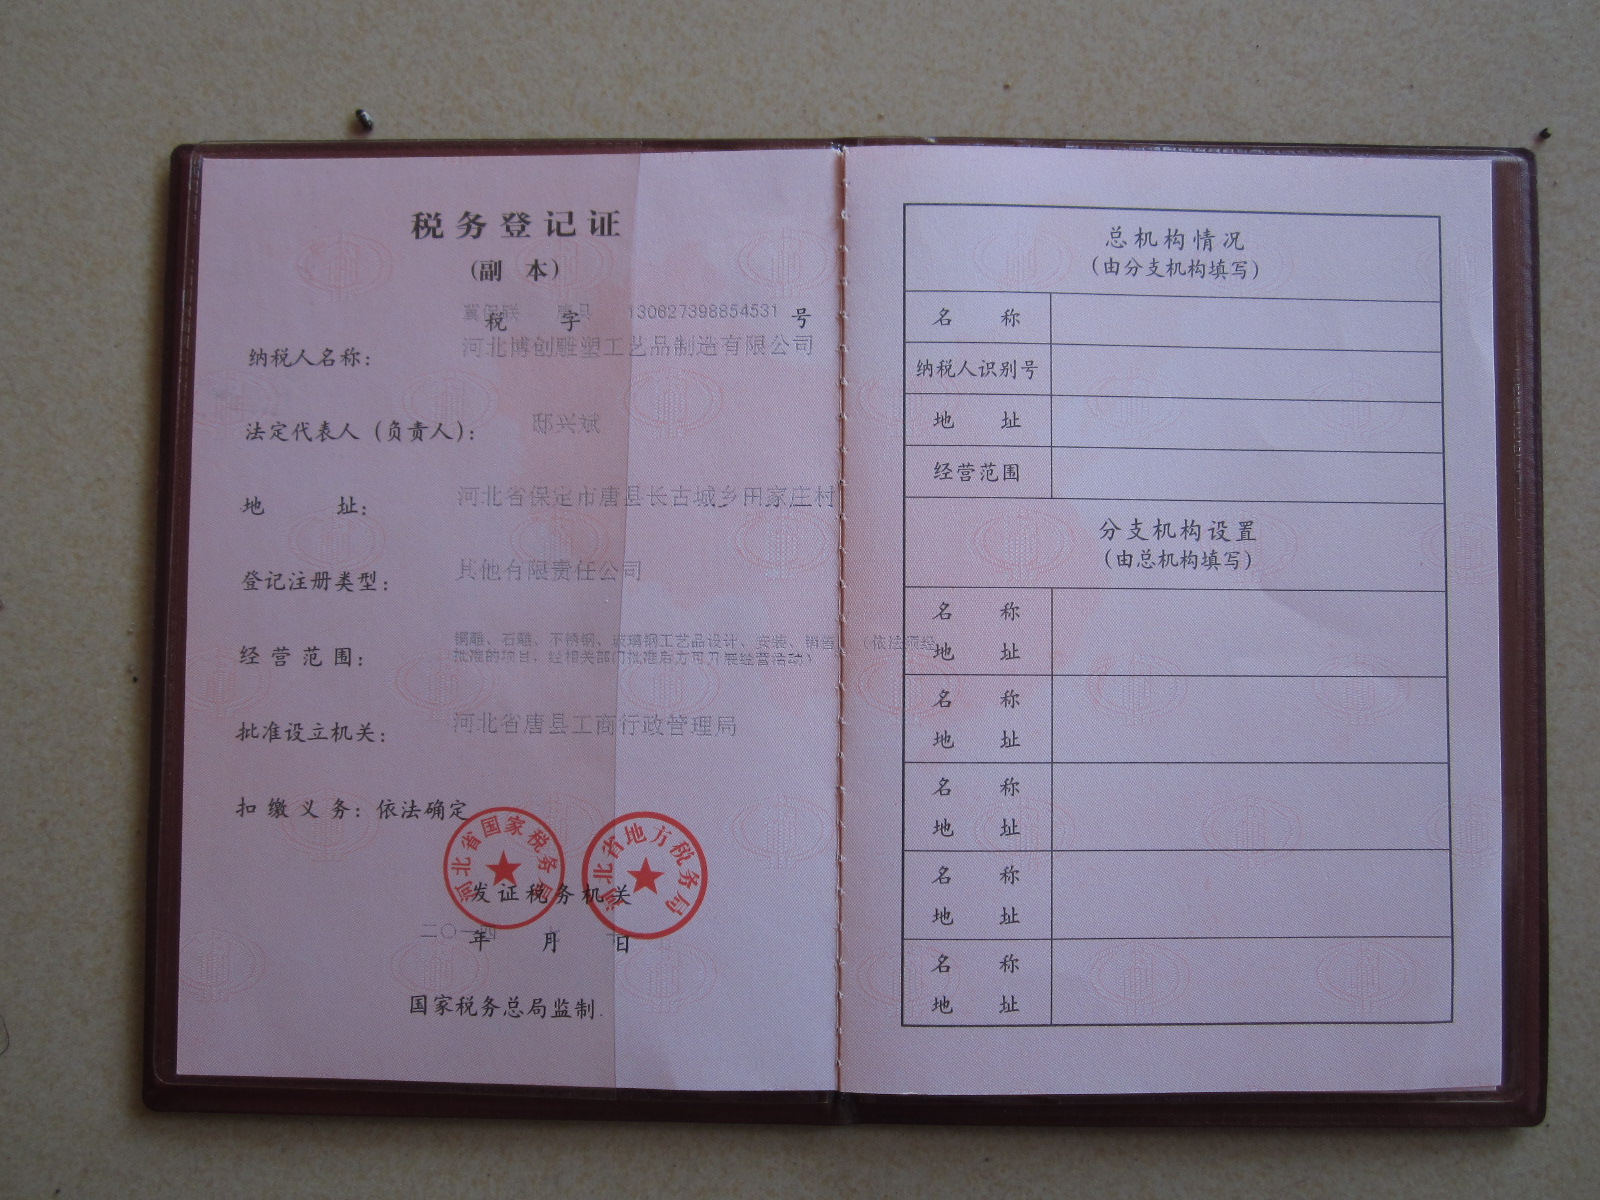 税务登记证
(副 本)
冀保联 唐县 130627398854531
税 字 号
纳税人名称： 河北博创雕塑工艺品制造有限公司
法定代表人（负责人）： 邸兴斌
地 址： 河北省保定市唐县长古城乡田家庄村
登记注册类型： 其他有限责任公司
经营范围： 铜雕、石雕、不锈钢、玻璃钢工艺品设计、安装、销售 （依法须经
批准的项目，经相关部门批准后方可开展经营活动）
批准设立机关： 河北省唐县工商行政管理局
扣缴义务：依法确定
河北省国家税务局
河北省地方税务局
发证税务机关
二〇一四年 七月 日
国家税务总局监制.
总机构情况
（由分支机构填写）
名 称
纳税人识别号
地 址
经营范围
分支机构设置
（由总机构填写）
名 称
地 址
名 称
地 址
名 称
地 址
名 称
地 址
名 称
地 址